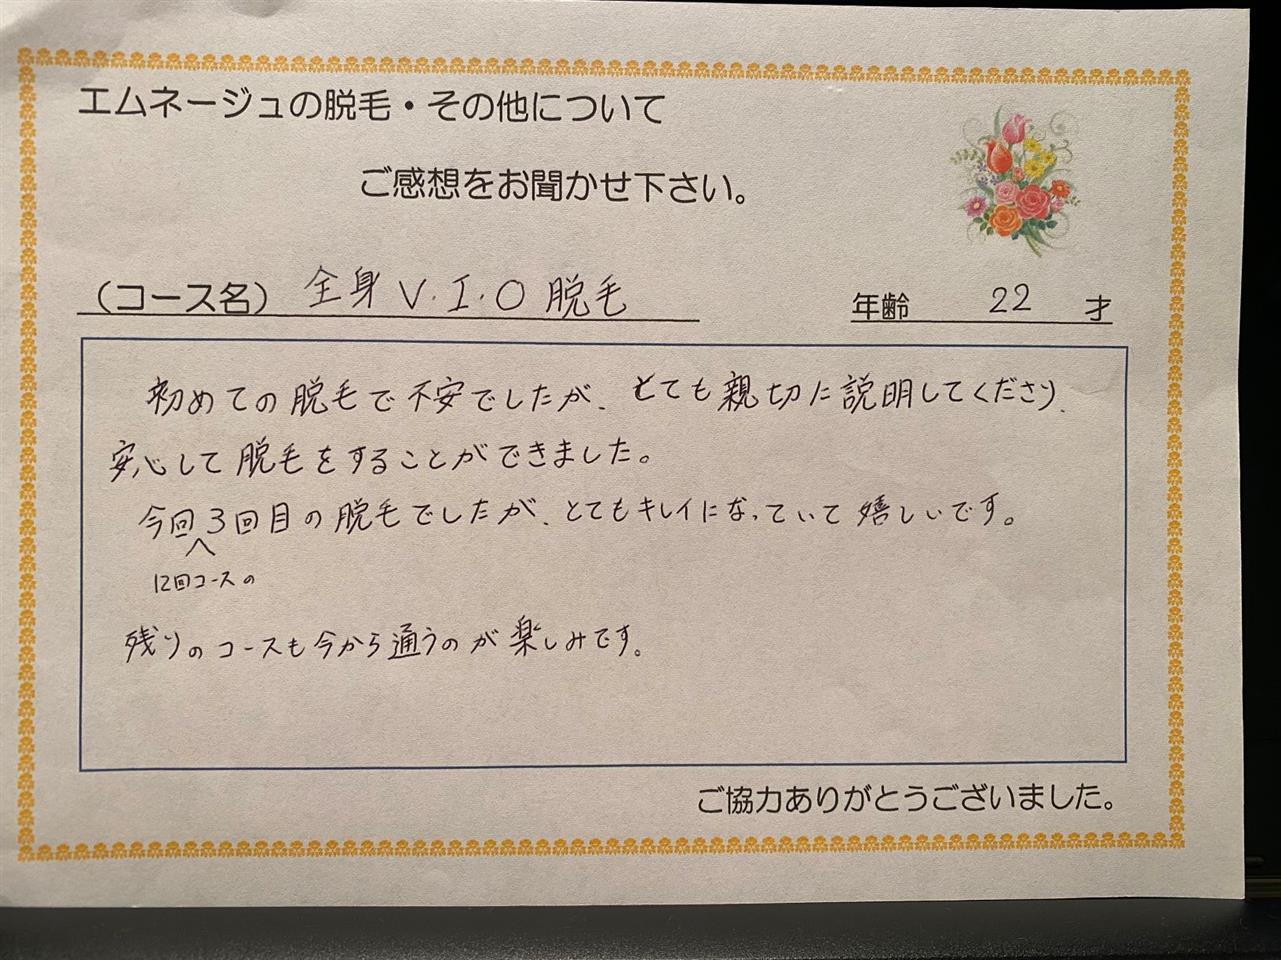 エムネージュの脱毛・その他について
ご感想をお聞かせ下さい。
（コース名） 全身 V・I・O 脱毛
年齢 22 才
初めての脱毛で不安でしたが、とても親切に説明してくださり、
安心して脱毛をすることができました。
今回3回目の脱毛でしたが、とてもキレイになっていて嬉しいです。
12回コースの
残りのコースも今から通うのが楽しみです。
ご協力ありがとうございました。